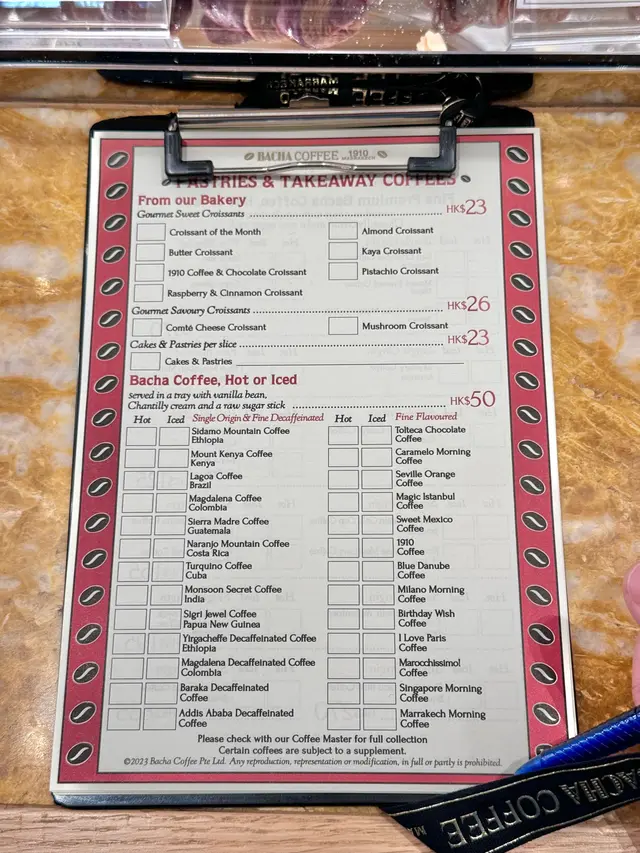 BACHA COFFEE 1910 MARRAKECH
PASTRIES & TAKEAWAY COFFEES
From our Bakery
Gourmet Sweet Croissants HK$23
Croissant of the Month Almond Croissant
Butter Croissant Kaya Croissant
1910 Coffee & Chocolate Croissant Pistachio Croissant
Raspberry & Cinnamon Croissant
Gourmet Savoury Croissants HK$26
Comté Cheese Croissant Mushroom Croissant
Cakes & Pastries per slice HK$23
Cakes & Pastries
Bacha Coffee, Hot or Iced
served in a tray with vanilla bean,
Chantilly cream and a raw sugar stick HK$50
Hot Iced Single Origin & Fine Decaffeinated
Sidamo Mountain Coffee
Ethiopia
Mount Kenya Coffee
Kenya
Lagoa Coffee
Brazil
Magdalena Coffee
Colombia
Sierra Madre Coffee
Guatemala
Naranjo Mountain Coffee
Costa Rica
Turquino Coffee
Cuba
Monsoon Secret Coffee
India
Sigri Jewel Coffee
Papua New Guinea
Yirgacheffe Decaffeinated Coffee
Ethiopia
Magdalena Decaffeinated Coffee
Colombia
Baraka Decaffeinated
Coffee
Addis Ababa Decaffeinated
Coffee
Hot Iced Fine Flavoured
Tolteca Chocolate
Coffee
Caramelo Morning
Coffee
Seville Orange
Coffee
Magic Istanbul
Coffee
Sweet Mexico
Coffee
1910
Coffee
Blue Danube
Coffee
Milano Morning
Coffee
Birthday Wish
Coffee
I Love Paris
Coffee
Marocchissimo!
Coffee
Singapore Morning
Coffee
Marrakech Morning
Coffee
Please check with our Coffee Master for full collection
Certain coffees are subject to a supplement.
©2023 Bacha Coffee Pte Ltd. Any reproduction, representation or modification, in full or partly is prohibited.
BACHA COFFEE